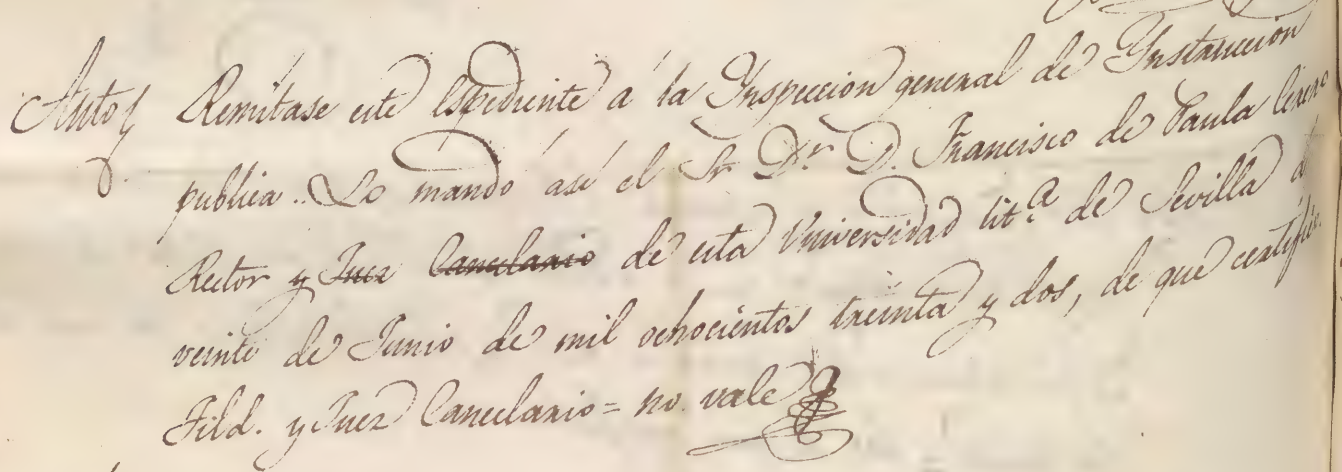 Auto Remitase este espediente á la Ynspeccion general de Ynstruccion
publica. Lo mandó asi el Sr. Dr. D. Francisco de Paula
Rector y Juez Cancelario de esta Universidad lit.ª de Sevilla á
veinte de Junio de mil ochocientos treinta y dos, de que certifico.
Tild. y Juez Cancelario = no vale